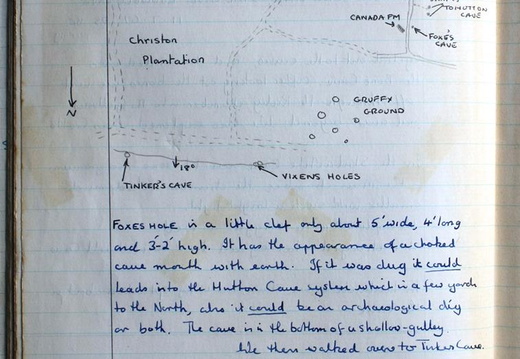 TO HUTTON
CAVES
CANADA FM
FOXE'S
CAVE
Christon
Plantation
GRUFFY
GROUND
N
18°
TINKER'S CAVE
VIXENS HOLES
FOXES HOLE is a little clef only about 5' wide, 4' long
and 3'-2' high. It has the appearance of a choked
cave mouth with earth. If it was dug it could
leads into the Hutton Cave system which is a few yards
to the North, also it could be an archaeological dig
or both. The cave is in the bottom of a shallow gulley.
We then walked over to Tinkers Cave.